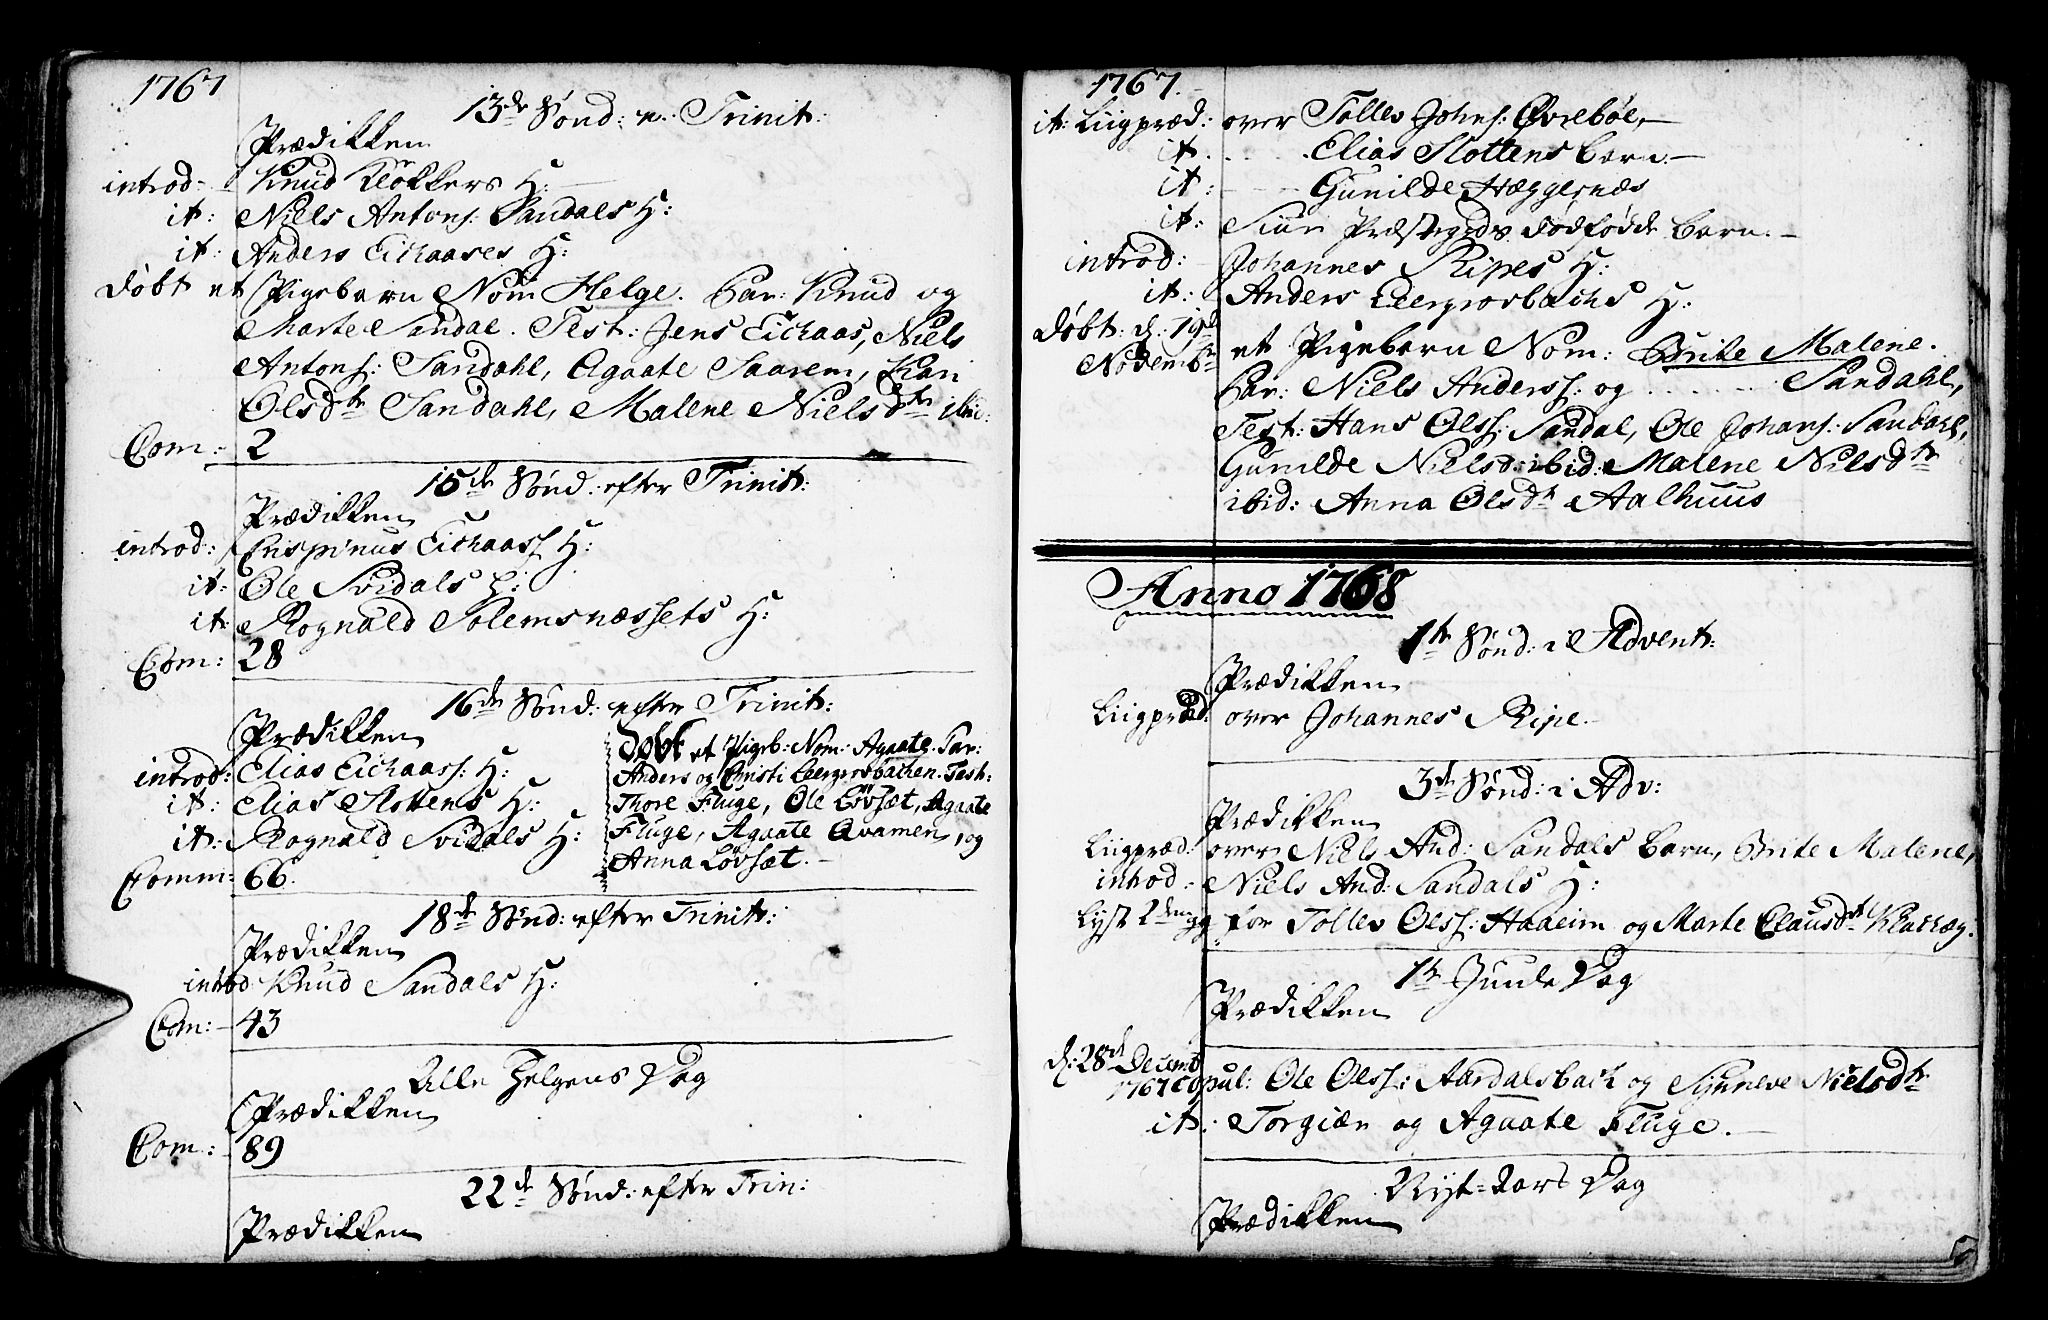 1767
13de Sønd: e: Trinit:
Prædikken
introd: Knud Kløkkers H:
it: Niels Antons: Sandals H:
it: Anders Eichaases H:
døbt et Pigebarn Nom Helge. Par: Knud og
Marte Sandal. Test: Jens Eichaas, Niels
Antons: Sandahl, Agaate Saarem, Kari
Olsdtr Sandahl, Malene Nielsdtr ibid:
Com: 2
15de Sønd: efter Trinit:
Prædikken
introd: Crispinus Eichaass H:
it: Ole Svidals H:
it: Rognald Solemsnæssets H:
Com: 28
16de Sønd: efter Trinit:
Prædikken
introd: Elias Eichaass: H:
it: Elias Slottens H:
it: Rognald Svidals H:
Comm: 66.
døbt et Pigeb: Nom: Agaate. Par:
Anders og Christi Leergrosbachen. Test:
Thore Fluge, Ole Løvsæt, Agaate
Fluge, Agaate Qvamen, og
Anna Løvsæt.
18de Sønd: efter Trinit:
Prædikken
introd Knud Sandals H:
Com: 43
Alle Helgens Dag
Prædikken
Com: 89
22de Sønd: efter Trin:
Prædikken
1767.
it: Liigpræd: over Tollev Johns: Øvrebøe,
it. Elias Slottens barn
it: Gunilde Hæggernæs
it: Siur Præstegrds dødfødde barn.
introd: Johannes Ripes H:
it: Anders Leergrosbachs H:
døbt: d: 19de
Novembr
et Pigebarn Nom: Brite Malene.
Par: Niels Anderss: og ..... Sandahl,
Test: Hans Olss: Sandal, Ole Johans: Sandahl,
Gunilde Nielsd: ibid: Malene Nielsdtr
ibid: Anna Olsdtr Aalhuus
Anno 1768
1te Sønd: i Advent:
Prædikken
Liigpræd: over Johannes Ripe.
3de Sønd: i Adv:
Prædikken
Liigpræd: over Niels And: Sandals barn, Brite Malene,
introd: Niels And: Sandals H:
Lyst 2den gg for Tollev Olss: Haaeim og Marte Clausdtr
1te Juule Dag
Prædikken
d: 28de Decemb
1767 copul: Ole Olss: Aardalsbach og Synneve Nielsdtr
it: Torgier og Agaate Fluge.
Nyt-Aars Dag
Prædikken